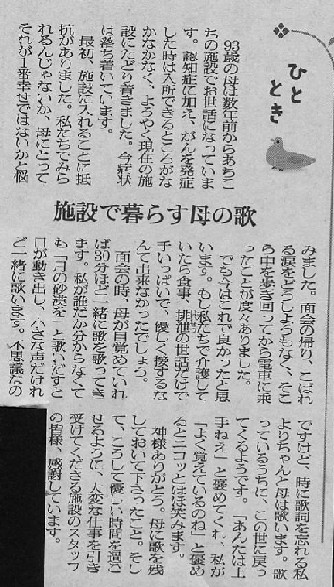 ひととき
施設で暮らす母の歌
93歳の母は数年前からあちこ
ちの施設でお世話になっていま
す。認知症に加え、がんを発症
した時は入所できるところがな
かなかなく、ようやく現在の施
設にたどり着きました。今症状
は落ち着いています。
最初、施設に入れることに抵
抗がありました。私たちでみら
れるんじゃないか、母にとって
それが1番幸せではないかと悩
みました。面会の帰り、こぼれ
る涙をどうしようもなく、そこ
ら中を歩き回ってから電車に乗
ったことが度々ありました。
でも今はこれで良かったと思
います。もし私たちで介護して
いたら食事、排泄の世話だけで
手いっぱいで、優しく接するな
んて出来なかったでしょう。
面会の時、母が目覚めていれ
ば30分ほど一緒に歌を歌ってき
ます。私が誰だか分からなくて
も「月の砂漠を」と歌いだすと
口が動き出し、小さな声だけれ
ど一緒に歌います。不思議なの
ですけど、時に歌詞を忘れる私
よりちゃんと母は歌います。歌
っているうちに、この世に戻っ
てくるようです。「あんたは上
手ねえ」と褒めてくれ、私が
「よく覚えているのね」と褒め
るとニコッとほほ笑みます。
神様ありがとう。母に歌を残
しておいて下さったこと。そし
て、こうして優しい時間を過ご
せるように、大変な仕事を引き
受けてくださる施設のスタッフ
の皆様、感謝しています。